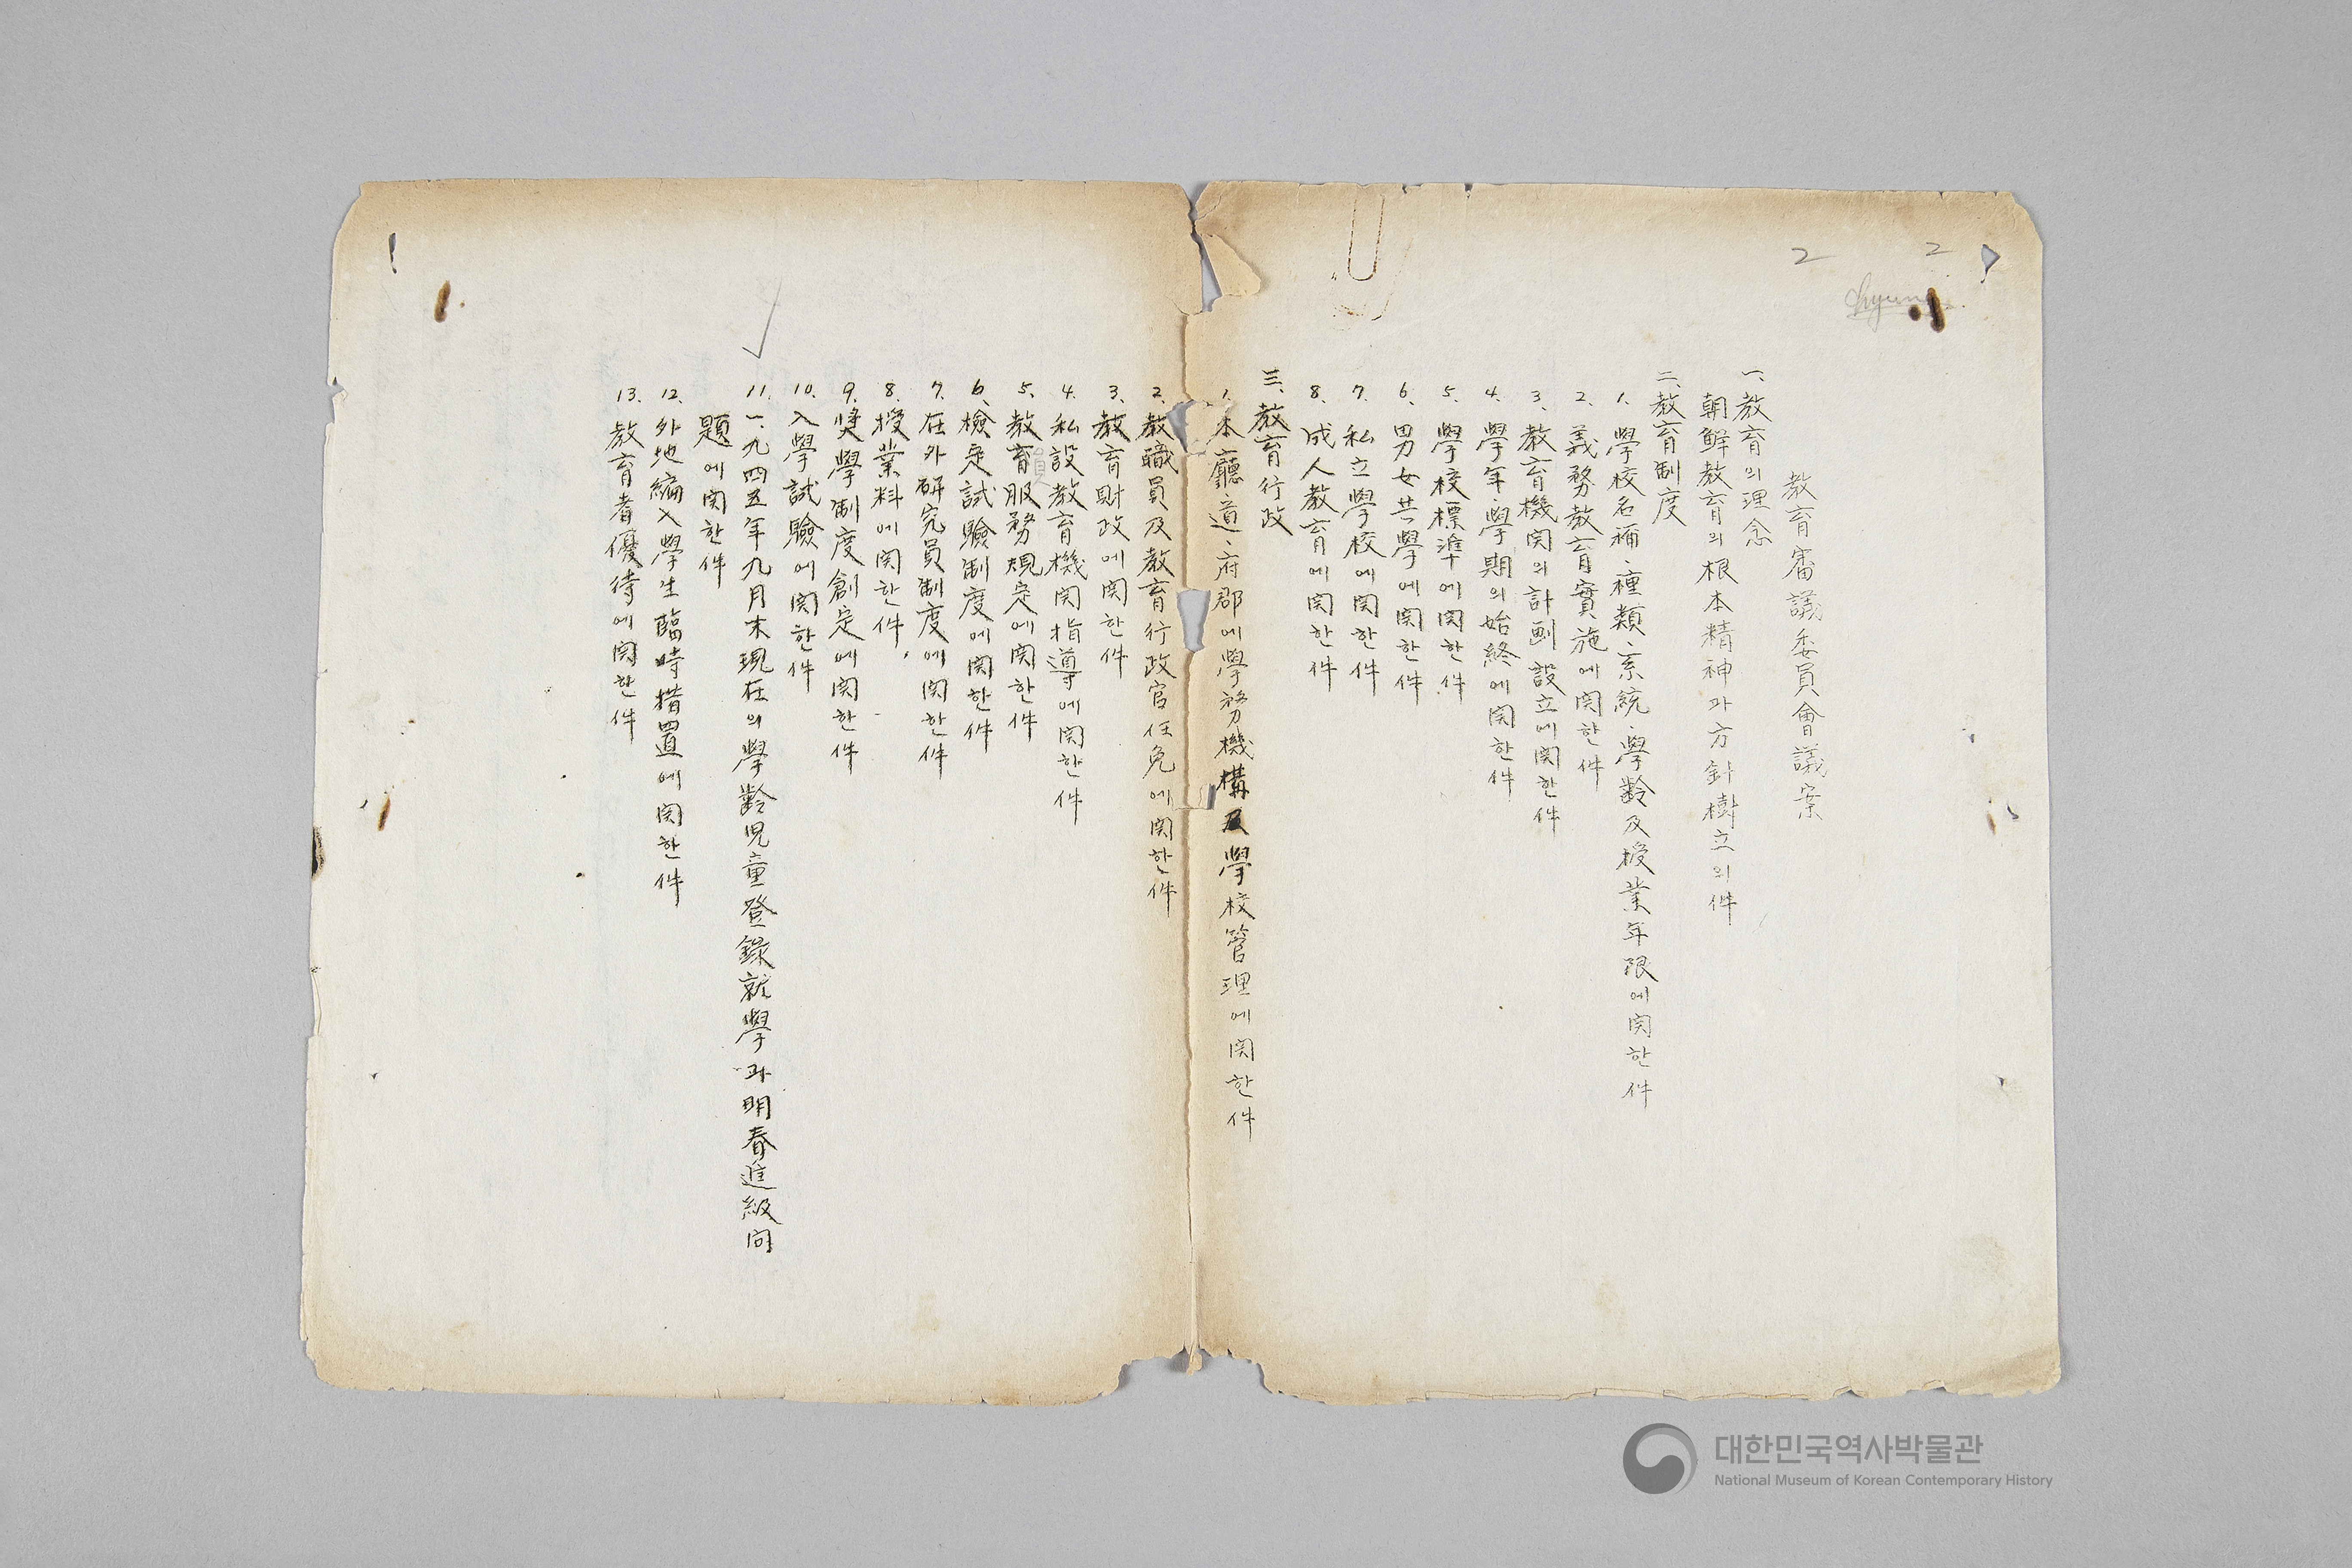 2 2
教育審議委員會議案
一、教育의理念
朝鮮教育의根本精神과方針樹立의件
二、教育制度
1. 學校名称、種類、系統、學齡及授業年限에関한件
2. 義務教育實施에関한件
3. 教育機関의計劃設立에関한件
4. 學年、學期의始終에関한件
5. 學校標準에関한件
6. 男女共學에関한件
7. 私立學校에関한件
8. 成人教育에関한件
三、教育行政
1. 本廳、道、府郡에學務機構及學校管理에関한件
2. 教職員及教育行政官任免에関한件
3. 教育財政에関한件
4. 私設教育機関指導에関한件
5. 教育服務規定에関한件
6. 檢定試驗制度에関한件
7. 在外硏究員制度에関한件
8. 授業料에関한件
9. 奬學制度創定에関한件
10. 入學試驗에関한件
11. 一九四五年九月末現在의學齡児童登錄就學과明春進級問
題에関한件
12. 外地編入學生臨時措置에関한件
13. 教育者優待에関한件
대한민국역사박물관
National Museum of Korean Contemporary History